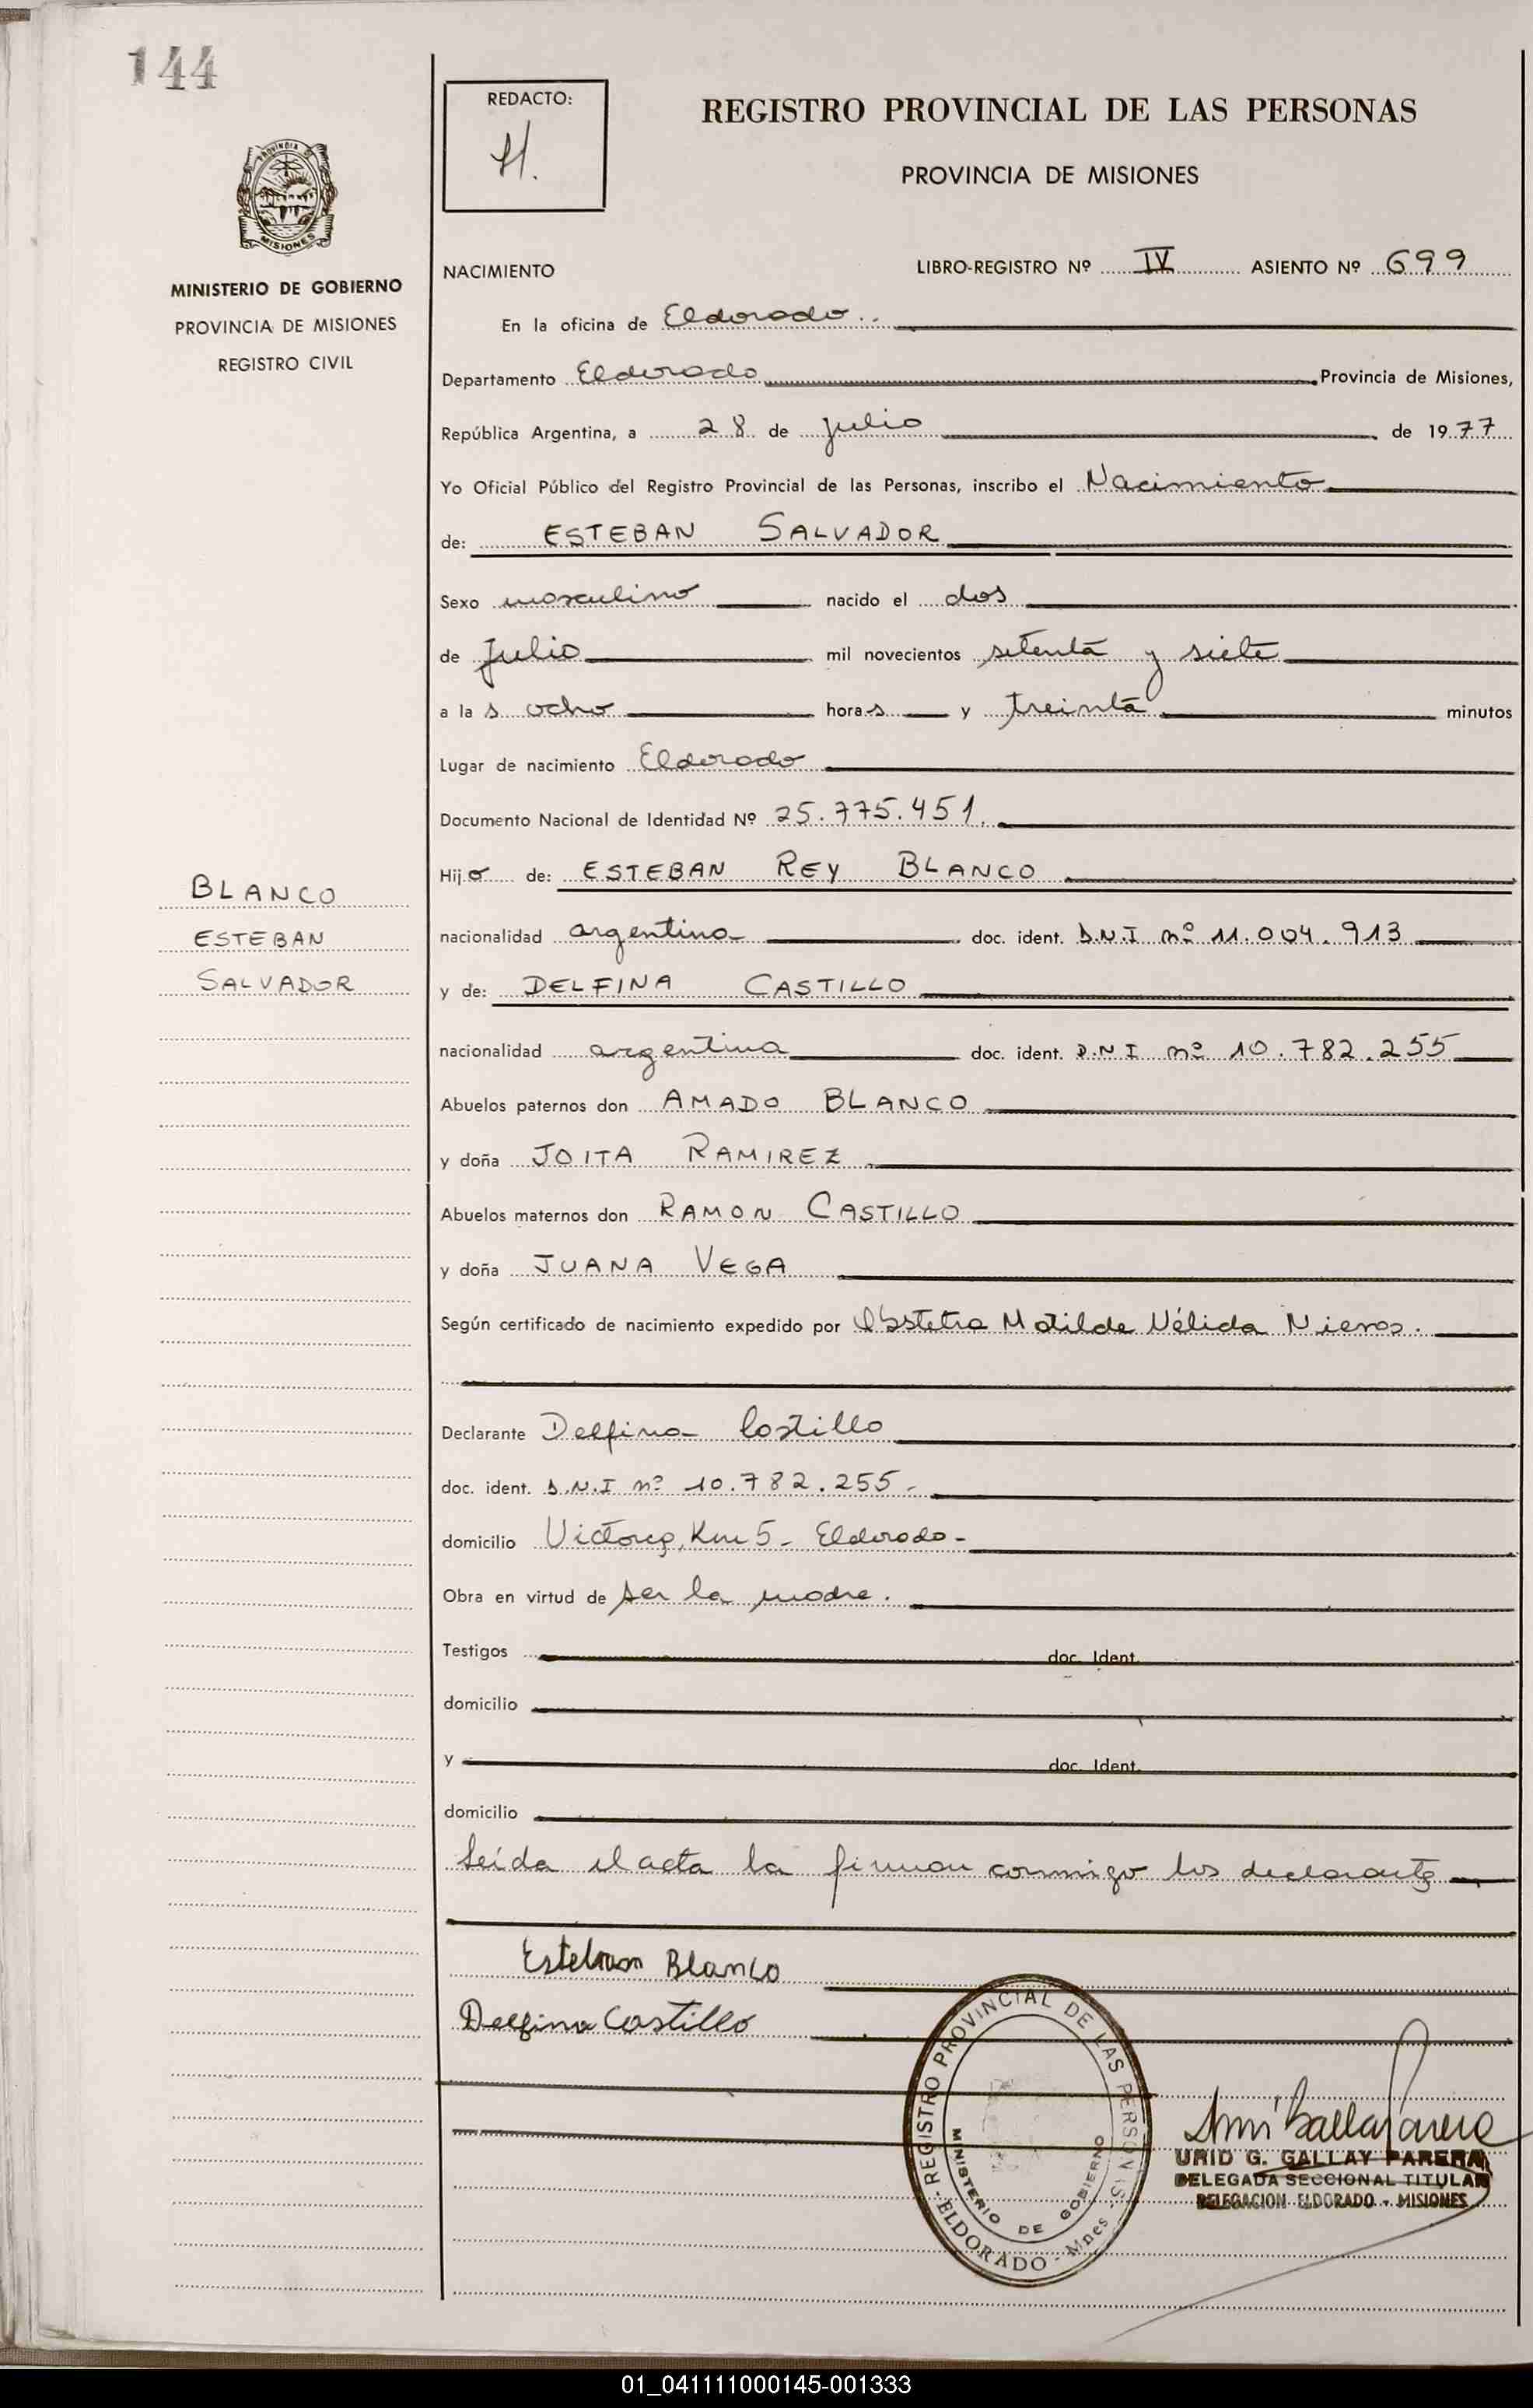 144
REDACTO:
H.
REGISTRO PROVINCIAL DE LAS PERSONAS
PROVINCIA DE MISIONES
PROVINCIA DE
MISIONES
MINISTERIO DE GOBIERNO
PROVINCIA DE MISIONES
REGISTRO CIVIL
NACIMIENTO LIBRO-REGISTRO Nº IV ASIENTO Nº 699
En la oficina de Eldorado
Departamento Eldorado Provincia de Misiones,
República Argentina, a 28 de julio de 1977
Yo Oficial Público del Registro Provincial de las Personas, inscribo el Nacimiento
de: ESTEBAN SALVADOR
Sexo masculino nacido el dos
de Julio mil novecientos setenta y siete
a las ocho horas y treinta minutos
Lugar de nacimiento Eldorado
Documento Nacional de Identidad Nº 25.775.451.
Hijo de: ESTEBAN REY BLANCO
BLANCO
ESTEBAN
SALVADOR
nacionalidad argentina doc. ident. D.N.I nº 11.004.913
y de: DELFINA CASTILLO
nacionalidad argentina doc. ident. D.N.I nº 10.782.255
Abuelos paternos don AMADO BLANCO
y doña JOITA RAMIREZ
Abuelos maternos don RAMON CASTILLO
y doña JUANA VEGA
Según certificado de nacimiento expedido por Obstetra Matilde Nélida
Declarante Delfina Castillo
doc. ident. D.N.I nº 10.782.255-
domicilio Km 5- Eldorado-
Obra en virtud de ser la madre.
Testigos doc. Ident.
domicilio
y doc. Ident.
domicilio
Leída el acta la firman conmigo los declarantes
Esteban Blanco
Delfina Castillo
REGISTRO PROVINCIAL DE LAS PERSONAS
MINISTERIO DE GOBIERNO
- ELDORADO - Mnes -
URID G. GALLAY PARERA
DELEGADA SECCIONAL TITULAR
DELEGACION ELDORADO - MISIONES
01_041111000145-001333